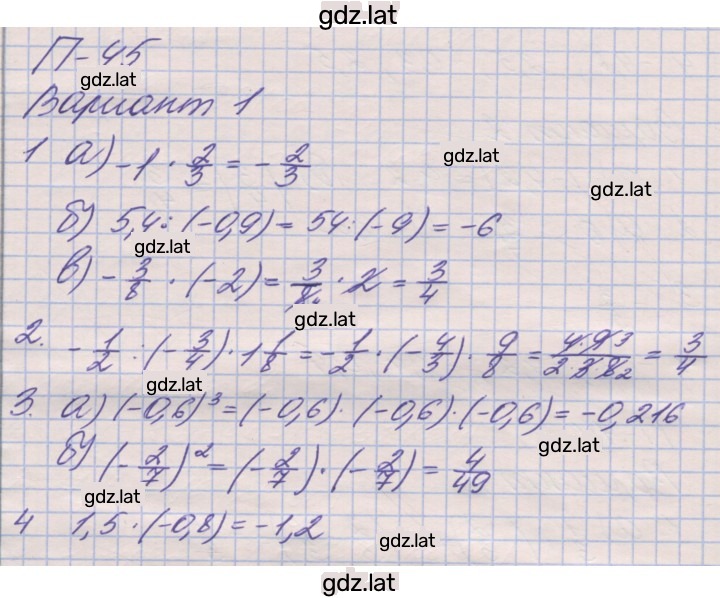 gdz.lat
П-45
gdz.lat
Вариант 1
1 а) -1 · 2/3 = - 2/3
gdz.lat
gdz.lat
б) 5,4 : (-0,9) = 54 : (-9) = -6
gdz.lat
в) - 3/8 · (-2) = 3/8 · 2 = 3/4
gdz.lat
2. - 1/2 : (- 3/4) · 1 1/8 = - 1/2 · (- 4/3) · 9/8 = 4·9 3/2·3·8 2 = 3/4
gdz.lat
3. а) (-0,6)³ = (-0,6) · (-0,6) · (-0,6) = -0,216
gdz.lat
б) (- 2/7)² = (- 2/7) · (- 2/7) = 4/49
gdz.lat
4 1,5 · (-0,8) = -1,2
gdz.lat
gdz.lat